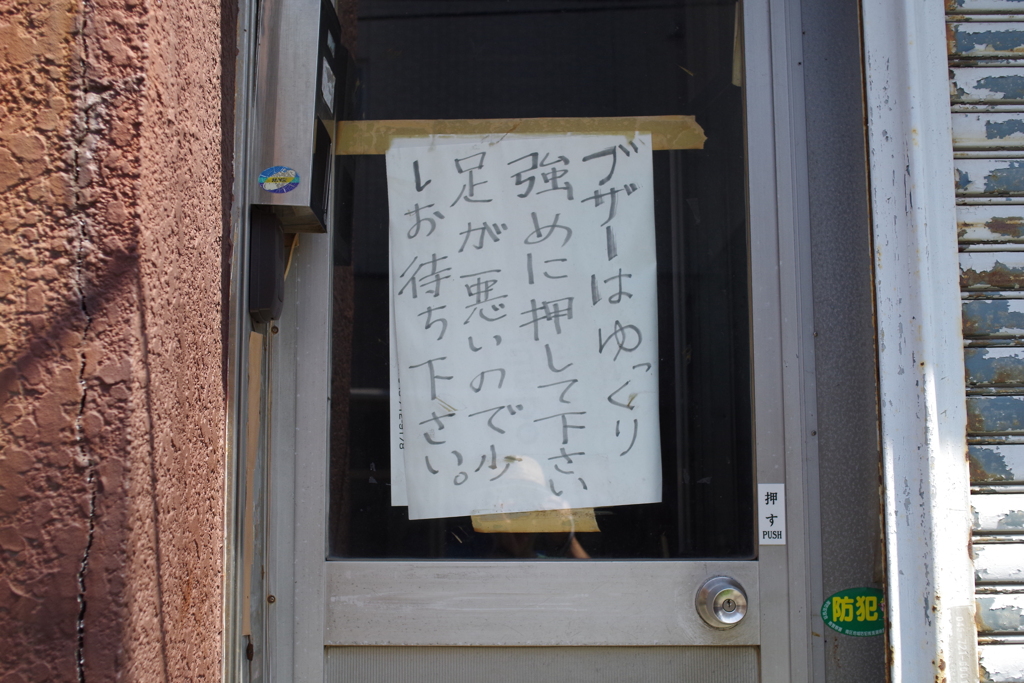 ブザーはゆっくり
強めに押して下さい
足が悪いので少
しお待ち下さい。
押す
PUSH
防犯